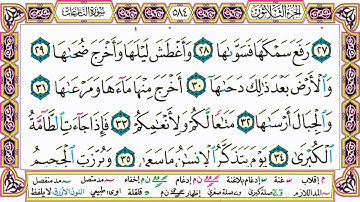 الجُزْءُ الثَّلَاثُون ٥٨٤ سُورَةُ النَّازِعَات
٢٧ رَفَعَ سَمْكَهَا فَسَوَّىٰهَا ٢٨ وَأَغْطَشَ لَيْلَهَا وَأَخْرَجَ ضُحَىٰهَا ٢٩
وَالْأَرْضَ بَعْدَ ذَٰلِكَ دَحَىٰهَا ٣٠ أَخْرَجَ مِنْهَا مَاءَهَا وَمَرْعَىٰهَا ٣١
وَالْجِبَالَ أَرْسَىٰهَا ٣٢ مَتَٰعًا لَّكُمْ وَلِأَنْعَٰمِكُمْ ٣٣ فَإِذَا جَاءَتِ الطَّامَّةُ
الْكُبْرَىٰ ٣٤ يَوْمَ يَتَذَكَّرُ الْإِنسَٰنُ مَا سَعَىٰ ٣٥ وَبُرِّزَتِ الْجَحِيمُ